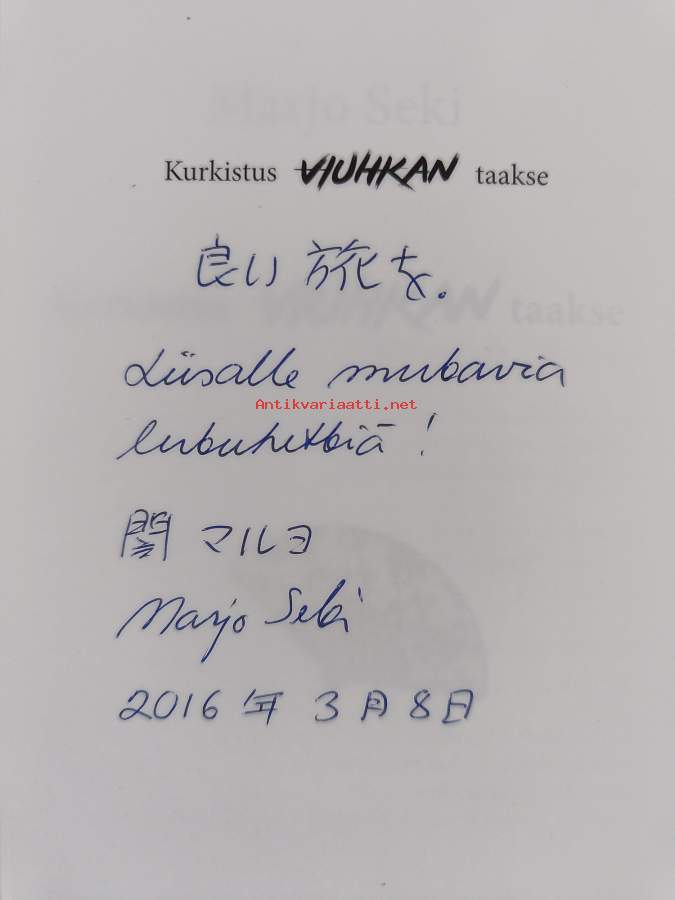 Kurkistus VIUHKAN taakse
良い旅を。
Liisalle mukavia
Antikvariaatti.net
lukuhetkiä!
関 マルヨ
Marjo Seki
2016年3月8日